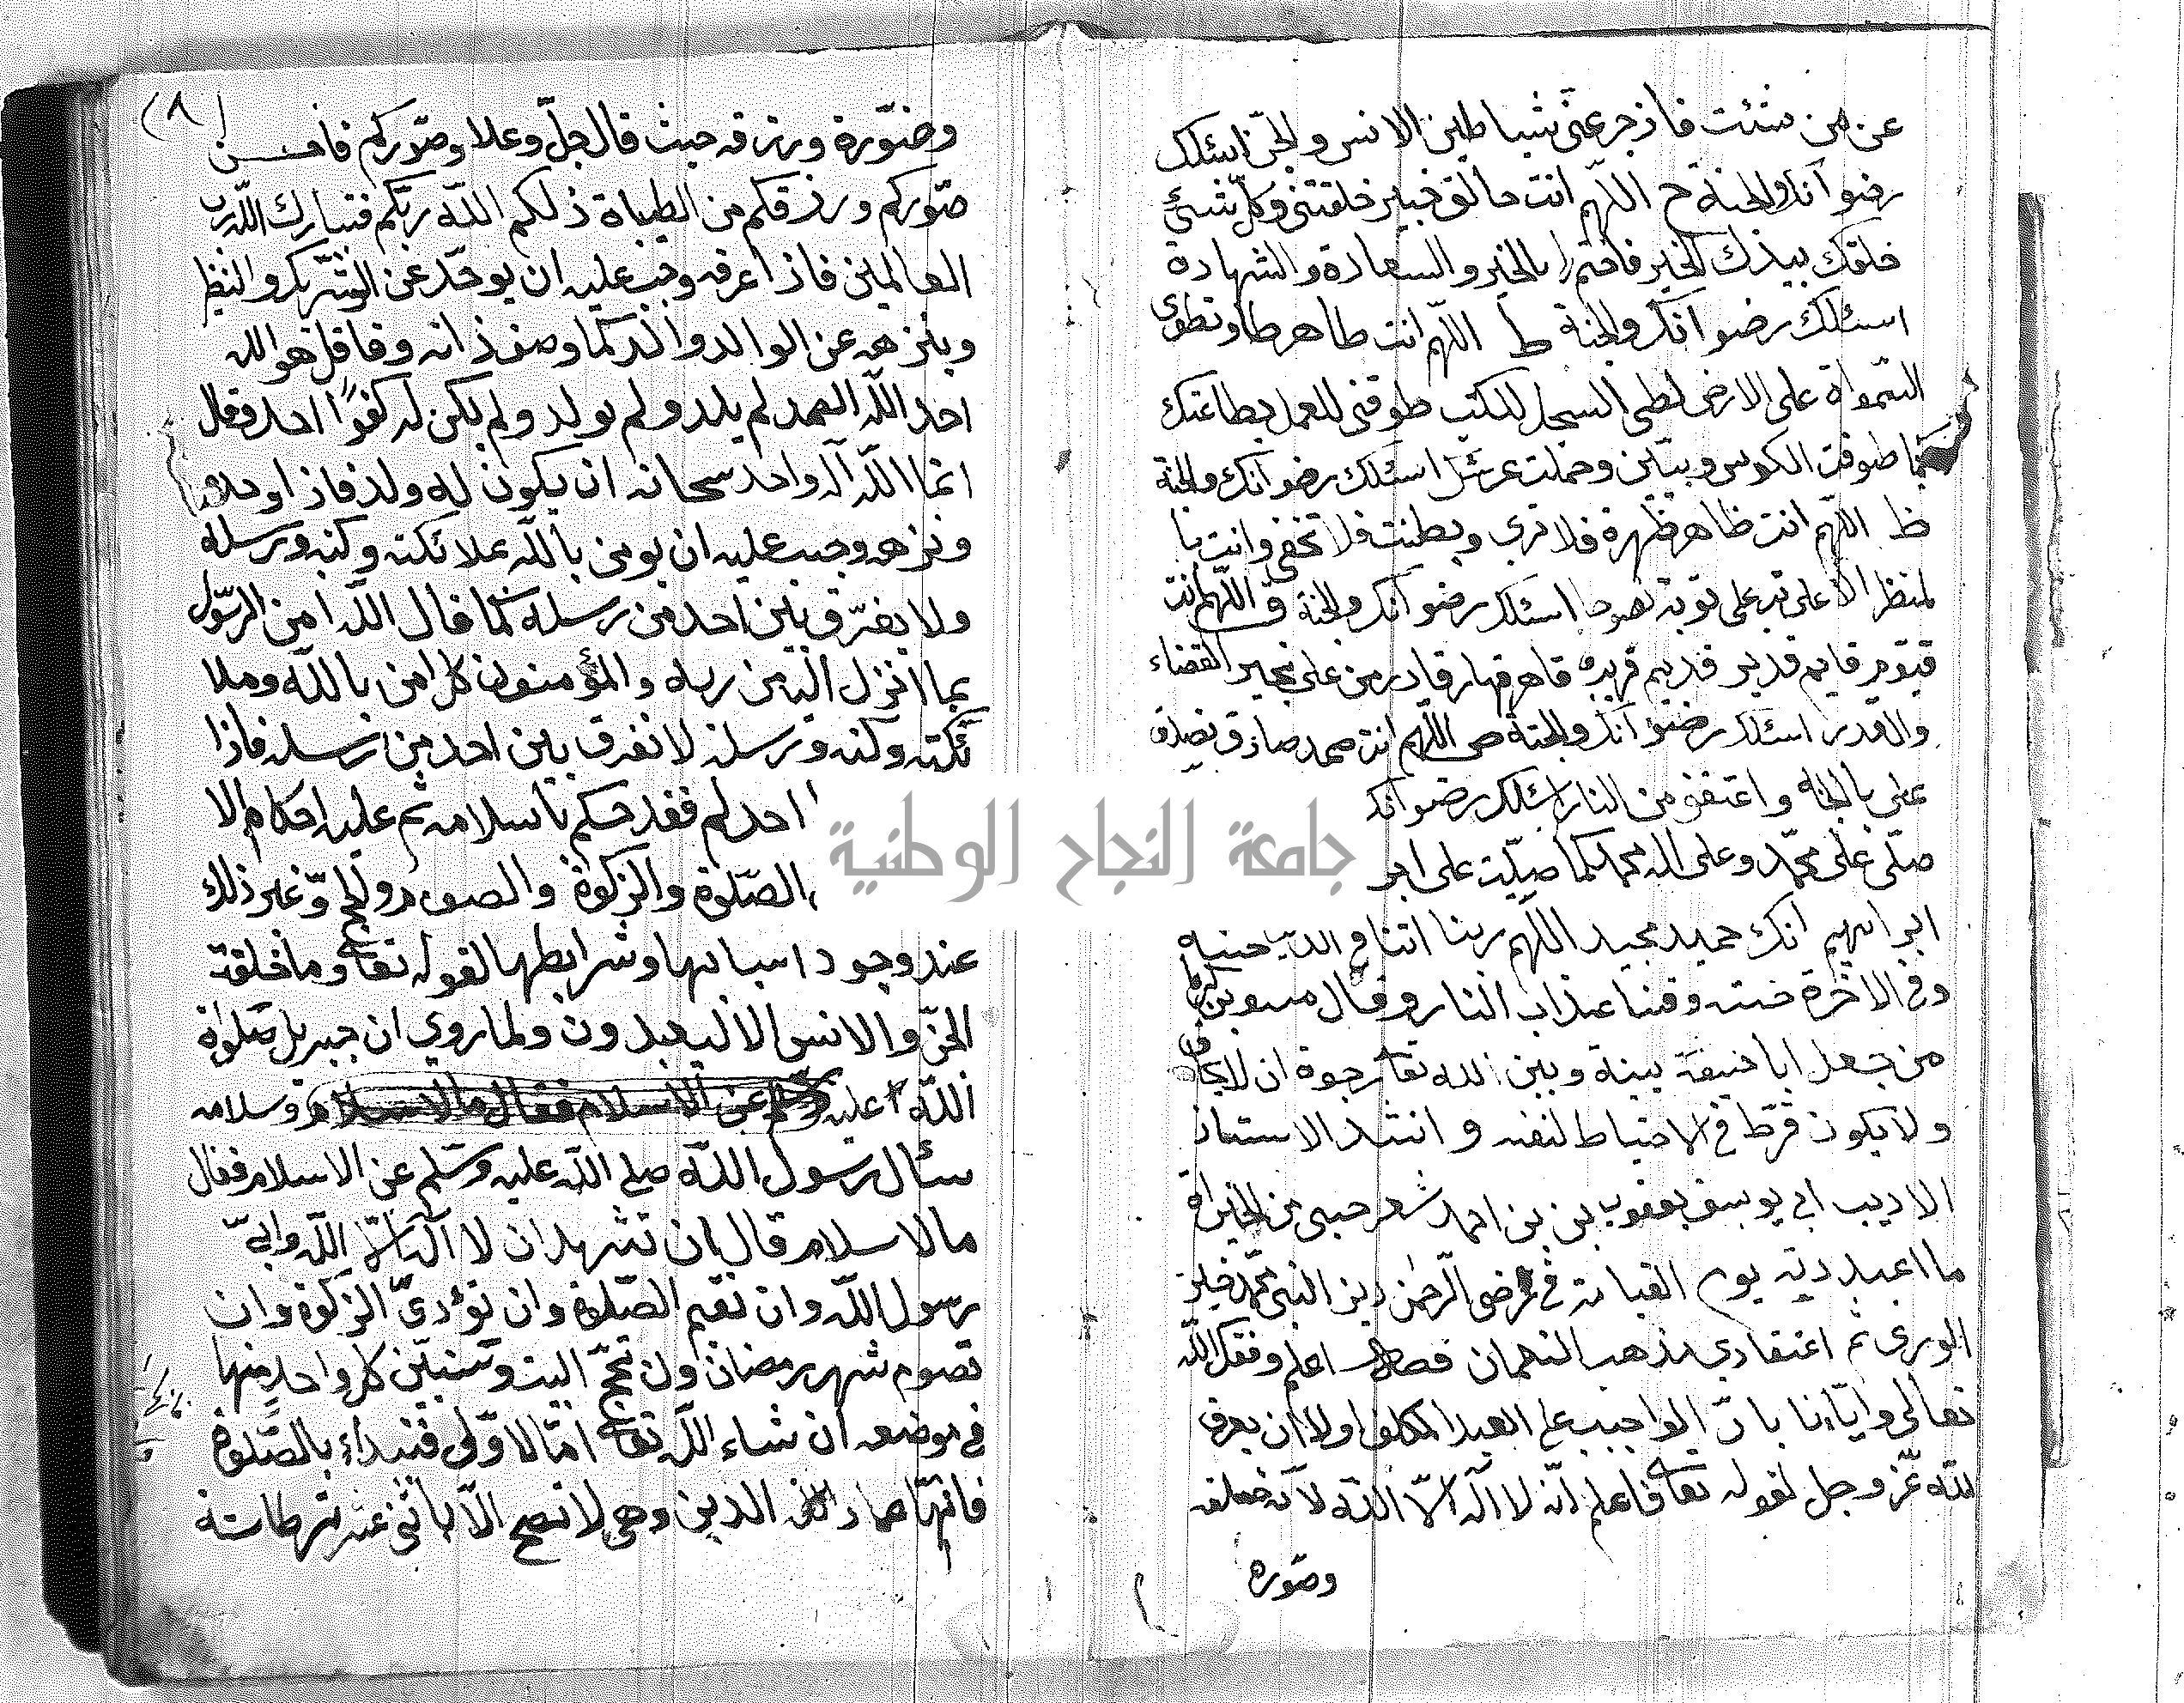 عن من شئت فازجر عني شياطين الانس والجن اسئلك
رضوانك والجنة خ اللهم انت خالق خبير خلقتني وكل شيئ
خلقك بيدك الخير فاختم لي بالخير والسعادة والشهادة
اسئلك رضوانك والجنة ط اللهم انت طاهر طاو تطوى
السموات على الارض لطي السجل للكتب طوقني للعمل بطاعتك
كما طوقت وحملت عرشك اسئلك رضوانك والجنة
ظ اللهم انت ظاهر ظهرة فلا ترى وبطنت فلا تخفى وانت با
لمنظر الاعلى تب على توبة نصوحا اسئلك رضوانك والجنة ق اللهم انت
قيوم قايم قدير قديم قاهر قهار قادر من على بخير القضاء
والقدر اسئلك رضوانك والجنة ص اللهم انت صمد صادق تصدق
على بالجنة واعتقني من النار اسئلك رضوانك
صلى على محمد وعلى اله محمد كما صليت على ابر
ابراهيم انك حميد مجيد اللهم ربنا اتنا في الدنيا حسنة
وفي الاخرة حسنة وقنا عذاب النار وقال
من جعل ابا حنيفة بينه وبين الله تعا رجوة ان لا يخاف
ولا يكون فرط في الاحتياط لنفسه وانشد الاستاذ
الاديب ابي يوسف يعقوب بن بن احمد شعر حسبي من الخيرات
ما اعددته يوم القيامة في رضى الرحمن دين النبي محمد خير
الورى ثم اعتقادي مذهب النعمان اعلم وفقك الله
تعالى وايانا بان الواجب على العبد المكلف اولا ان يعرف
لله عز وجل لقوله تعا فاعلم انه لا اله الا الله لانه خلقه
وصوره
(٨)
وصوره ورزقه حيث قال جل وعلا وصوركم فاحسن
صوركم ورزقكم من الطيباة ذلكم الله ربكم فتبارك الله رب
العالمين فاذا عرفه وجب عليه ان يوحد عن الشريك والنظير
وينزهه عن الوالد والد كما وصف ذاته وقا قل هو الله
احد الله الصمد لم يلد ولم يولد ولم يكن له كفوا احد وقال
انما الله اله واحد سبحانه ان يكون له ولد فاذا وحده
ونزهه وجب عليه ان يومن بالله بملائكته وكتبه ورسله
ولا يفرق بين احد من رسله كما قال الله امن الرسول
بما انزل اليه من ربه والمؤمنون كل امن بالله وملا
ئكته وكتبه ورسله لا نفرق بين احد من رسله فاذا
احد لم فقد حكم باسلامه ثم عليه احكام الا
الصلوة والزكوة والصوم والحج وغير ذلك
عند وجود اسبابها وشرايطها لقوله تعا وما خلقت
الجن والانس الا ليعبدون ولما روي ان جبريل صلوة
الله عليه وسلامه
سئال رسول الله صلى الله عليه وسلم عن الاسلام فقال
ما الاسلام قال ان تشهد ان لا اله الا الله واني
رسول الله وان تقيم الصلوة وان تؤدي الزكوة وان
تصوم شهر رمضان وان تحج البيت وسنبين كل واحد منها
في موضعه ان شاء الله تعا اما الاولى فنبداء بالصلوة
فانها عماد الدين وهي لا تصح الا باثنى عشر شرطا ستة
جامعة النجاح الوطنية